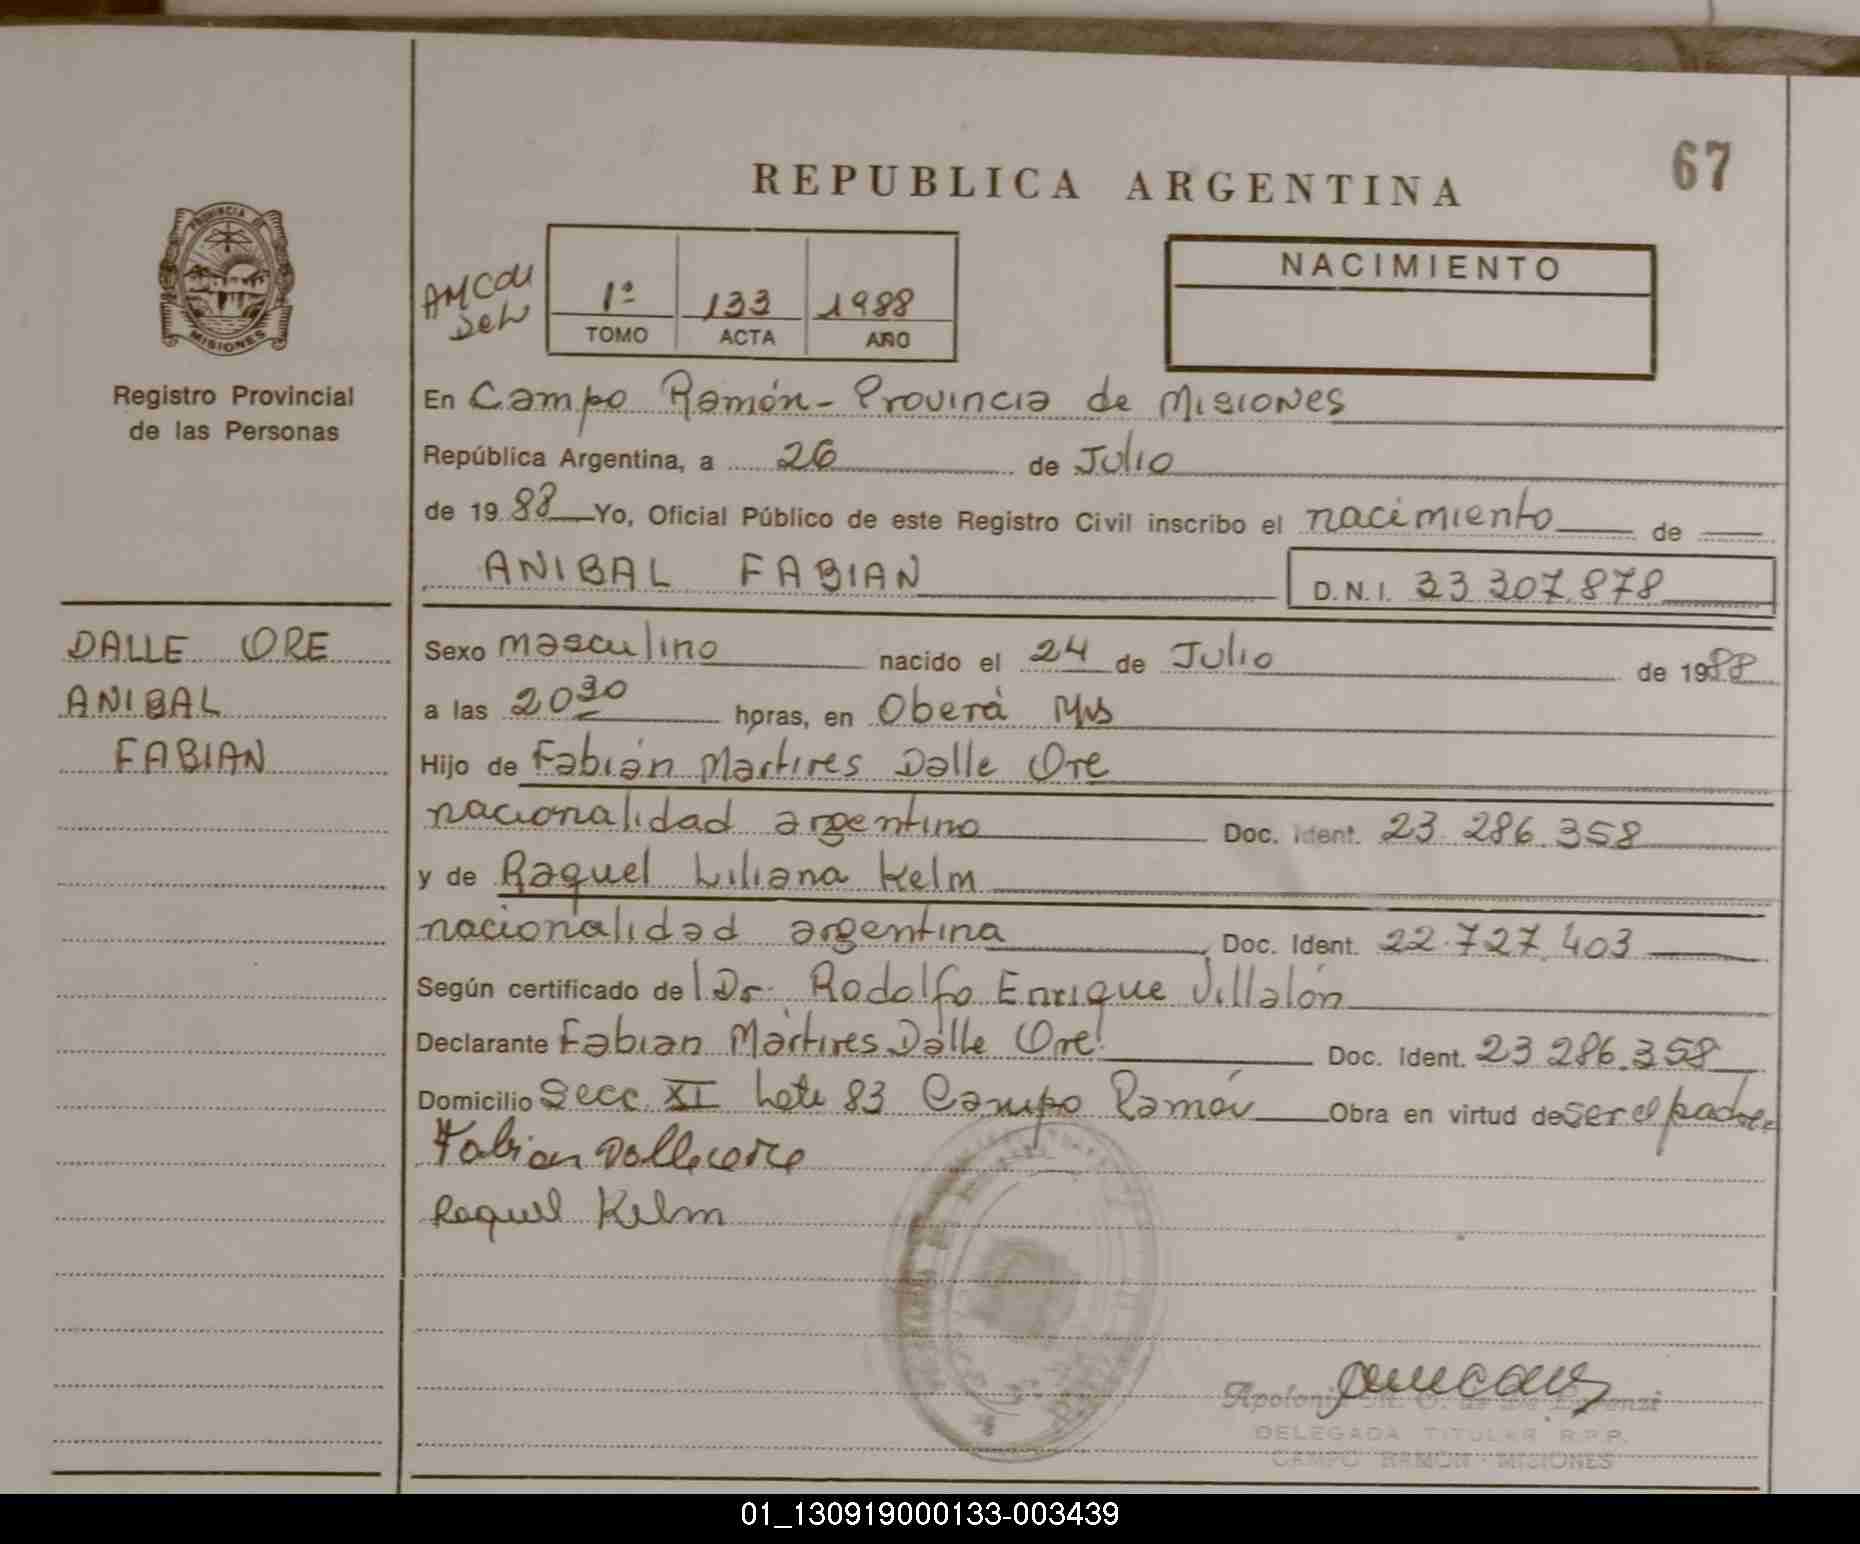 67
REPUBLICA ARGENTINA
PROVINCIA DE
MISIONES
Registro Provincial
de las Personas
1º 133 1988
TOMO ACTA AÑO
NACIMIENTO
En Campo Ramón - Provincia de Misiones
República Argentina, a 26 de Julio
de 1988 Yo, Oficial Público de este Registro Civil inscribo el nacimiento de
ANIBAL FABIAN D.N.I. 33 307.878
DALLE ORE
ANIBAL
FABIAN
Sexo masculino nacido el 24 de Julio de 1988
a las 20 30 horas, en Oberá Mns
Hijo de Fabián Martires Dalle Ore
nacionalidad argentino Doc. Ident. 23.286.358
y de Raquel Liliana Kelm
nacionalidad argentina Doc. Ident. 22.727.403
Según certificado del Dr. Rodolfo Enrique Villalón
Declarante Fabian Mártires Dalle Ore Doc. Ident. 23 286.358
Domicilio Secc. XI Lote 83 Campo Ramón Obra en virtud de ser el padre
Fabian Dalle ore
Raquel Kelm
DELEGADA TITULAR R.P.P.
CAMPO RAMON - MISIONES
01_130919000133-003439